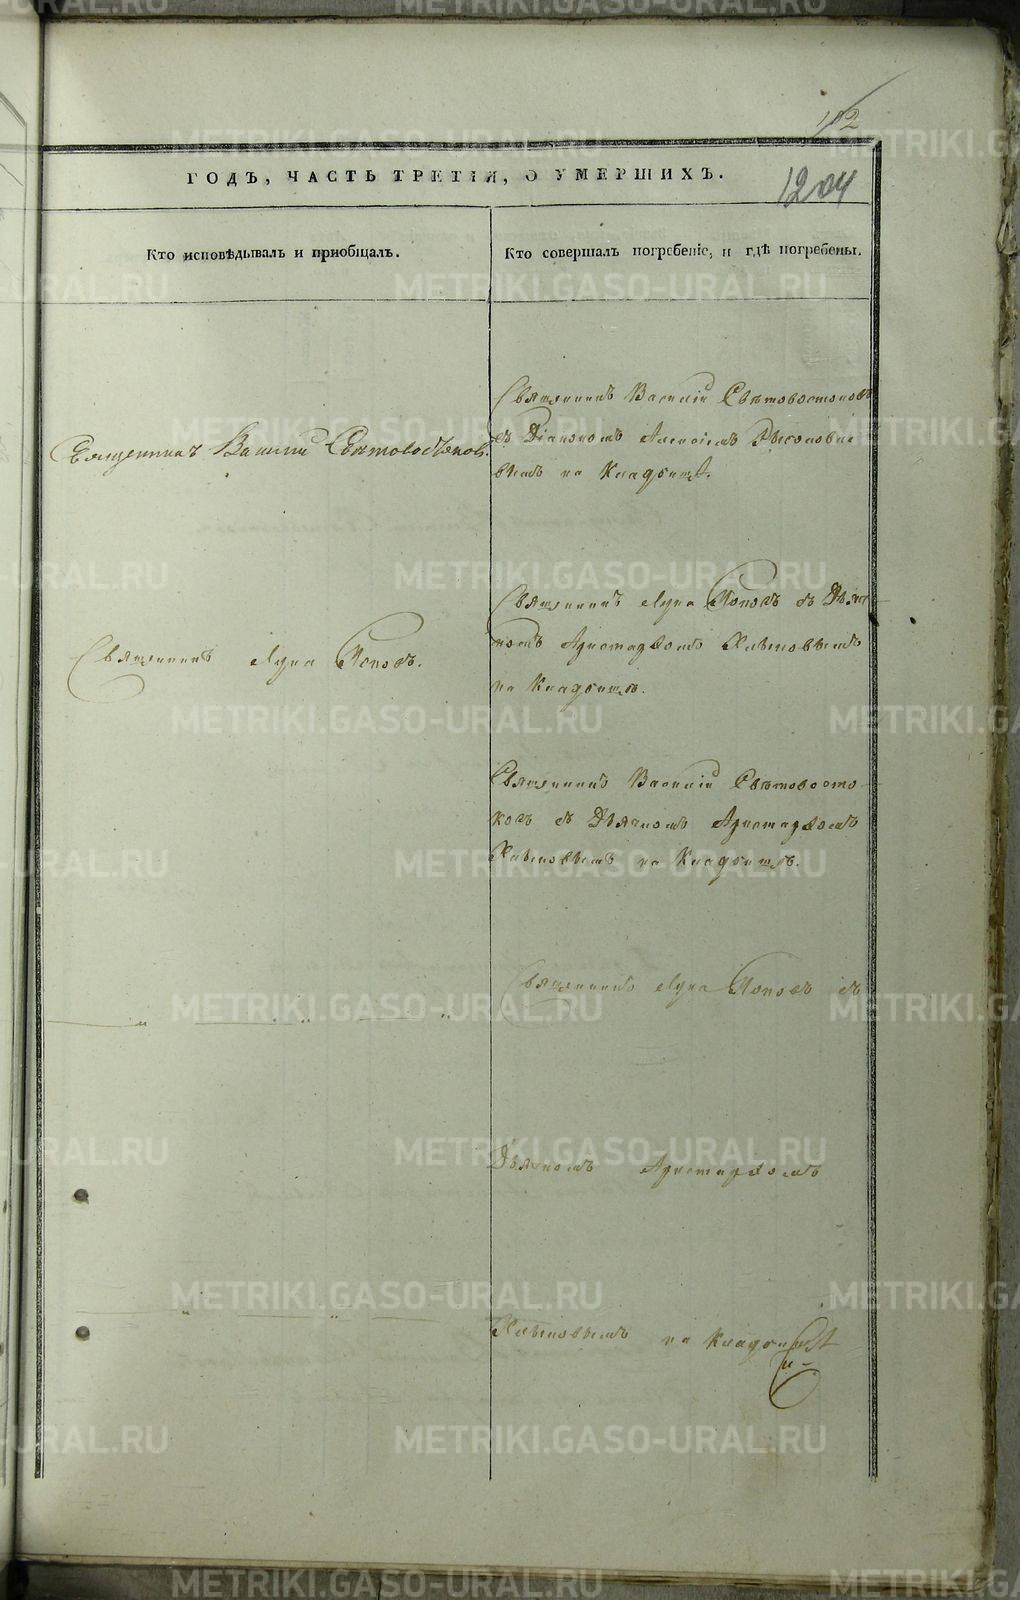 112
ГОДЪ, ЧАСТЬ ТРЕТІЯ, О УМЕРШИХЪ.
1204
Кто исповѣдывалъ и пріобщалъ.
Кто совершалъ погребеніе, и гдѣ погребены.
Священникъ Василій Свѣтовостоковъ.
Священникъ Василій Свѣтовостоковъ
съ Діакономъ Алексіемъ
на Кладбищѣ.
Священникъ Лука Поповъ.
Священникъ Лука Поповъ съ Дьяч-
комъ Аристархомъ Хлѣновымъ
на Кладбищѣ.
Священникъ Василій Свѣтовосто-
ковъ съ Дьячкомъ Аристархомъ
Хлѣновымъ на Кладбищѣ.
Священникъ Лука Поповъ съ
Дьячкомъ Аристархомъ
Хлѣновымъ на Кладбищѣ
METRIKI.GASO-URAL.RU